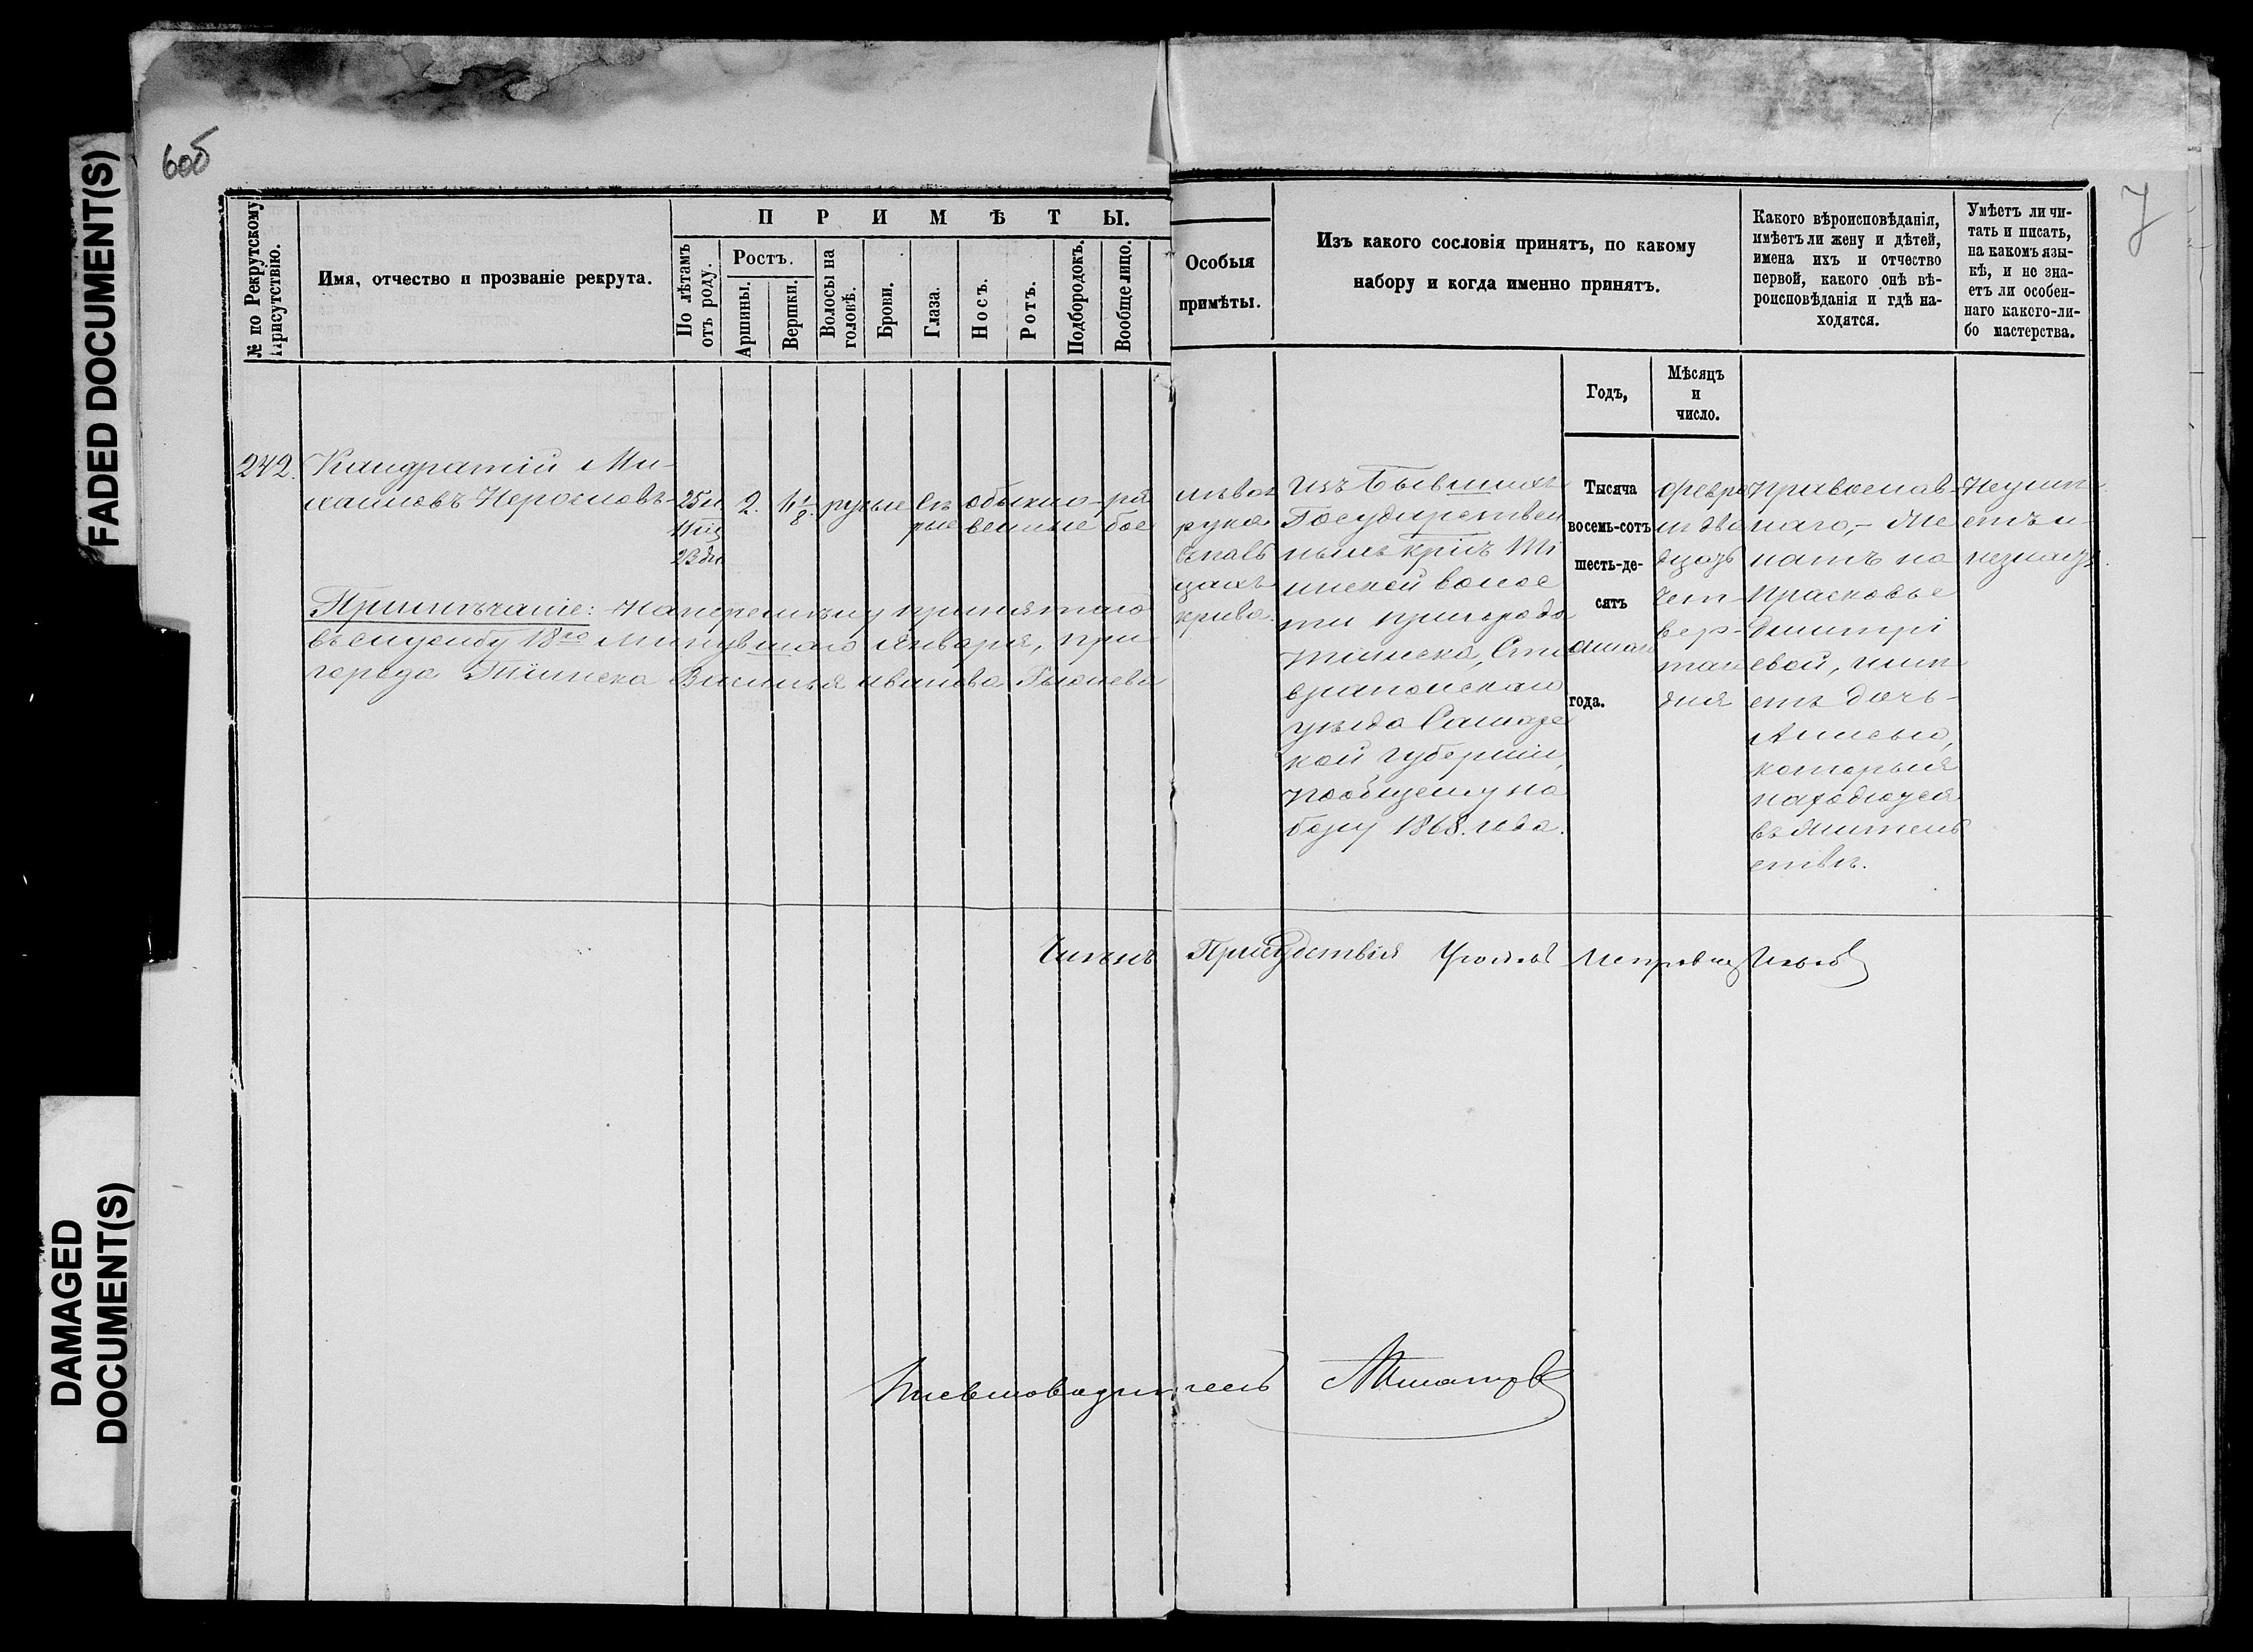 FADED DOCUMENT(S)
DAMAGED
DOCUMENT(S)
6об
7
№ по Рекрутскому Присутствію.
Имя, отчество и прозваніе рекрута.
ПРИМѢТЫ.
По лѣтамъ отъ роду.
Ростъ.
Аршины.
Вершки.
Волосы на головѣ.
Брови.
Глаза.
Носъ.
Ротъ.
Подбородокъ.
Вообще лицо.
Особыя
примѣты.
Изъ какого сословія принятъ, по какому
набору и когда именно принятъ.
Годъ,
Мѣсяцъ
и
число.
Какого вѣроисповѣданія,
имѣетъ ли жену и дѣтей,
имена ихъ и отчество
первой, какого онѣ вѣ-
роисповѣданія и гдѣ на-
ходятся.
Умѣетъ ли чи-
тать и писать,
на какомъ язы-
кѣ, и не зна-
етъ ли особен-
наго какого-ли-
бо мастерства.
242.
Кандратій Ми-
хаиловъ
25 л
11 мц
23 дн
2.
4 1/8
русые
Сѣ
рые
обыкно-
венные
ря
бое
лѣвая
рука
въ паль
цахъ
крива.
Изъ бывшихъ
Государствен
ныхъ крнъ Ті
инской волос
ти пригорода
Тіинска, Ста
вропольскаго
уѣзда Самарс
кой губерніи,
пообщему на
бору 1868. года.
Тысяча
восемь-сотъ
шесть-де-
сятъ
года.
февра
ля два
дцать
чет-
вер-
таго
дня
Православ-
наго, же
натъ на
Прасковье
Дмитрі
евой, имѣ
етъ дочь
которыя
находются
въ жительс
твѣ.
Неумѣ
етъ и
незнаетъ.
Примѣчаніе: На перемѣну принятаго
въ службу 18го минувшаго января, при
города Тіинска Василья Иванова
Членъ Присудствія